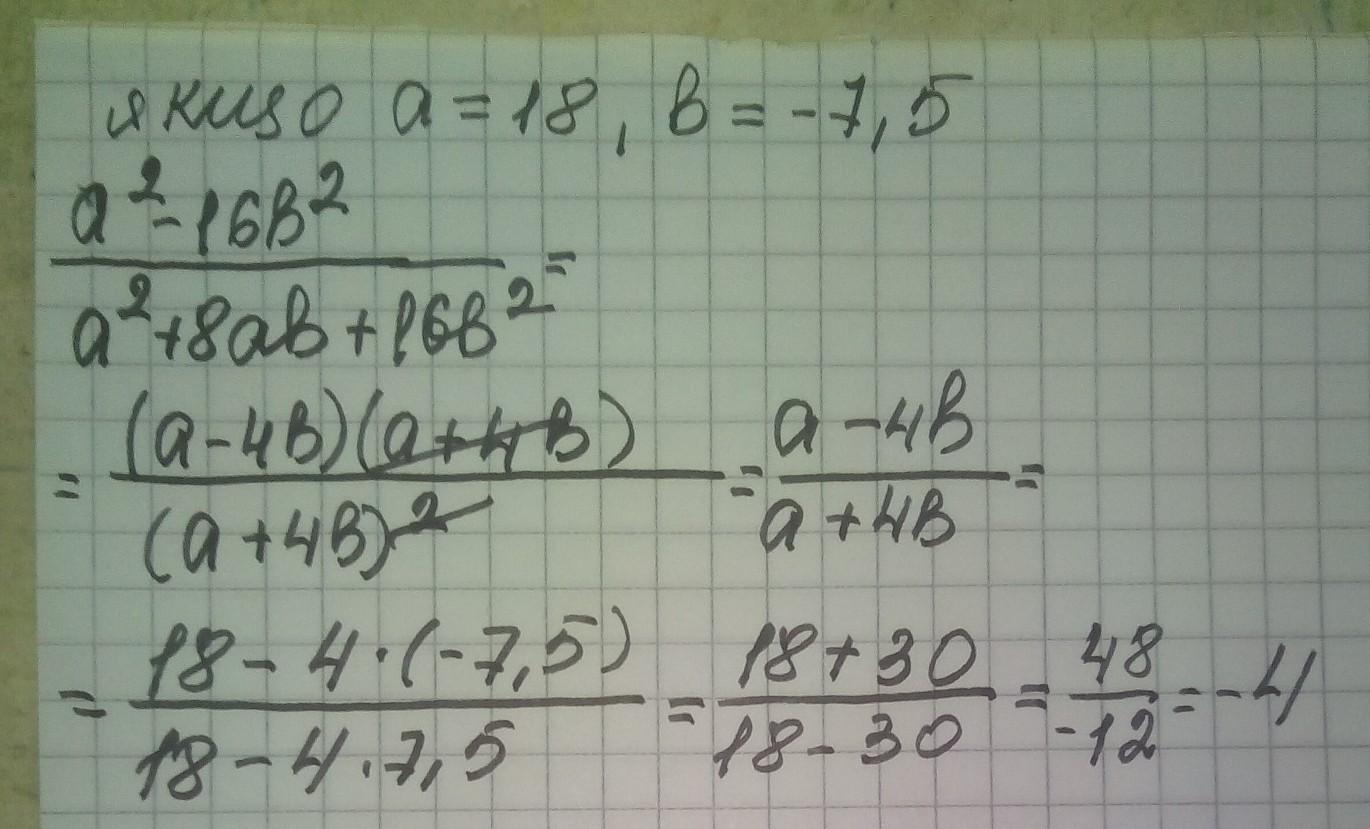 якщо a = 18, b = -7,5
a² - 16b²
a² + 8ab + 16b² =
= (a - 4b)(a + 4b) / (a + 4b)² = a - 4b / a + 4b =
= 18 - 4 · (-7,5) / 18 - 4 · 7,5 = 18 + 30 / 18 - 30 = 48 / -12 = -4